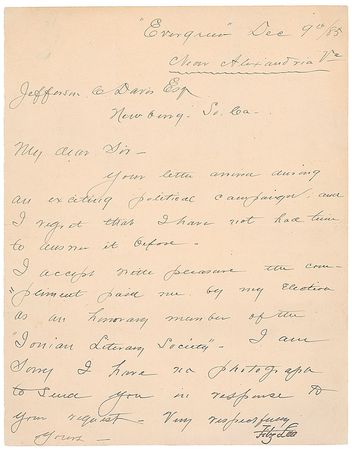 "Evergreen" Dec 9th/85
Near Alexandria Va
Jefferson C Davis Esq
Newberry. So. Ca-
My dear Sir-
Your letter arrived during
an exciting political campaign. and
I regret that I have not had time
to answer it before.
I accept with pleasure the com-
"pliment paid me by my election
as an honorary member of the
Ionian Literary Society". I am
Sorry I have no photograph
to Send you in response to
your request. Very respectfully
yours- Fitz Lee